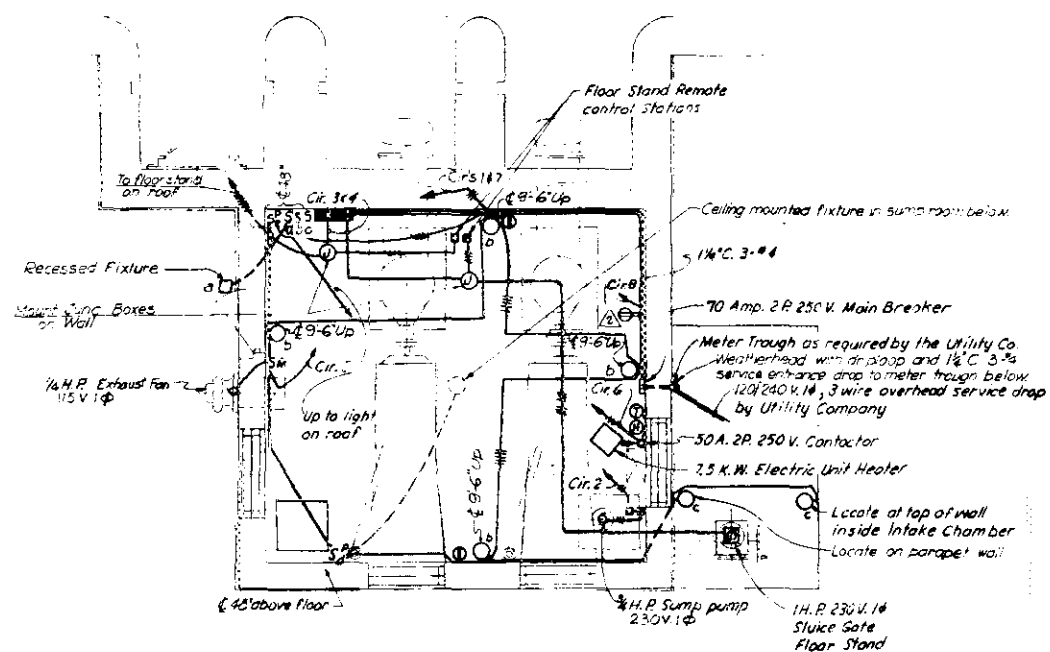 Floor Stand Remote
control Stations
To floor stand
on roof
℄ 48"
Cir. 3&4
Cir's 1&7
℄ 9'-6" Up
Ceiling mounted fixture in sump room below.
S P S S S
a b c
b
J
J
Recessed Fixture
a
1¼"C. 3-#4
Cir. 8
2
Mount Junc. Boxes
on Wall
70 Amp. 2P. 250 V. Main Breaker
℄ 9'-6" Up
b
℄ 9'-6" Up
b
Meter Trough as required by the Utility Co.
Weatherhead with driploop and 1¼"C 3-#4
service entrance drop to meter trough below.
120/240 V. 1ϕ, 3 wire overhead service drop
by Utility Company
Cir.
¼ H.P. Exhaust Fan
115 V. 1ϕ
Cir. 6
T
Up to light
on roof
50 A. 2P. 250 V. Contactor
7.5 K.W. Electric Unit Heater
℄ 9'-6" Up
Cir. 2
b
c
c
Locate at top of wall
inside Intake Chamber
Locate on parapet wall
S P
℄ 48" above floor
¾ H.P. Sump pump
230 V. 1ϕ
1 H.P. 230 V. 1ϕ
Sluice Gate
Floor Stand